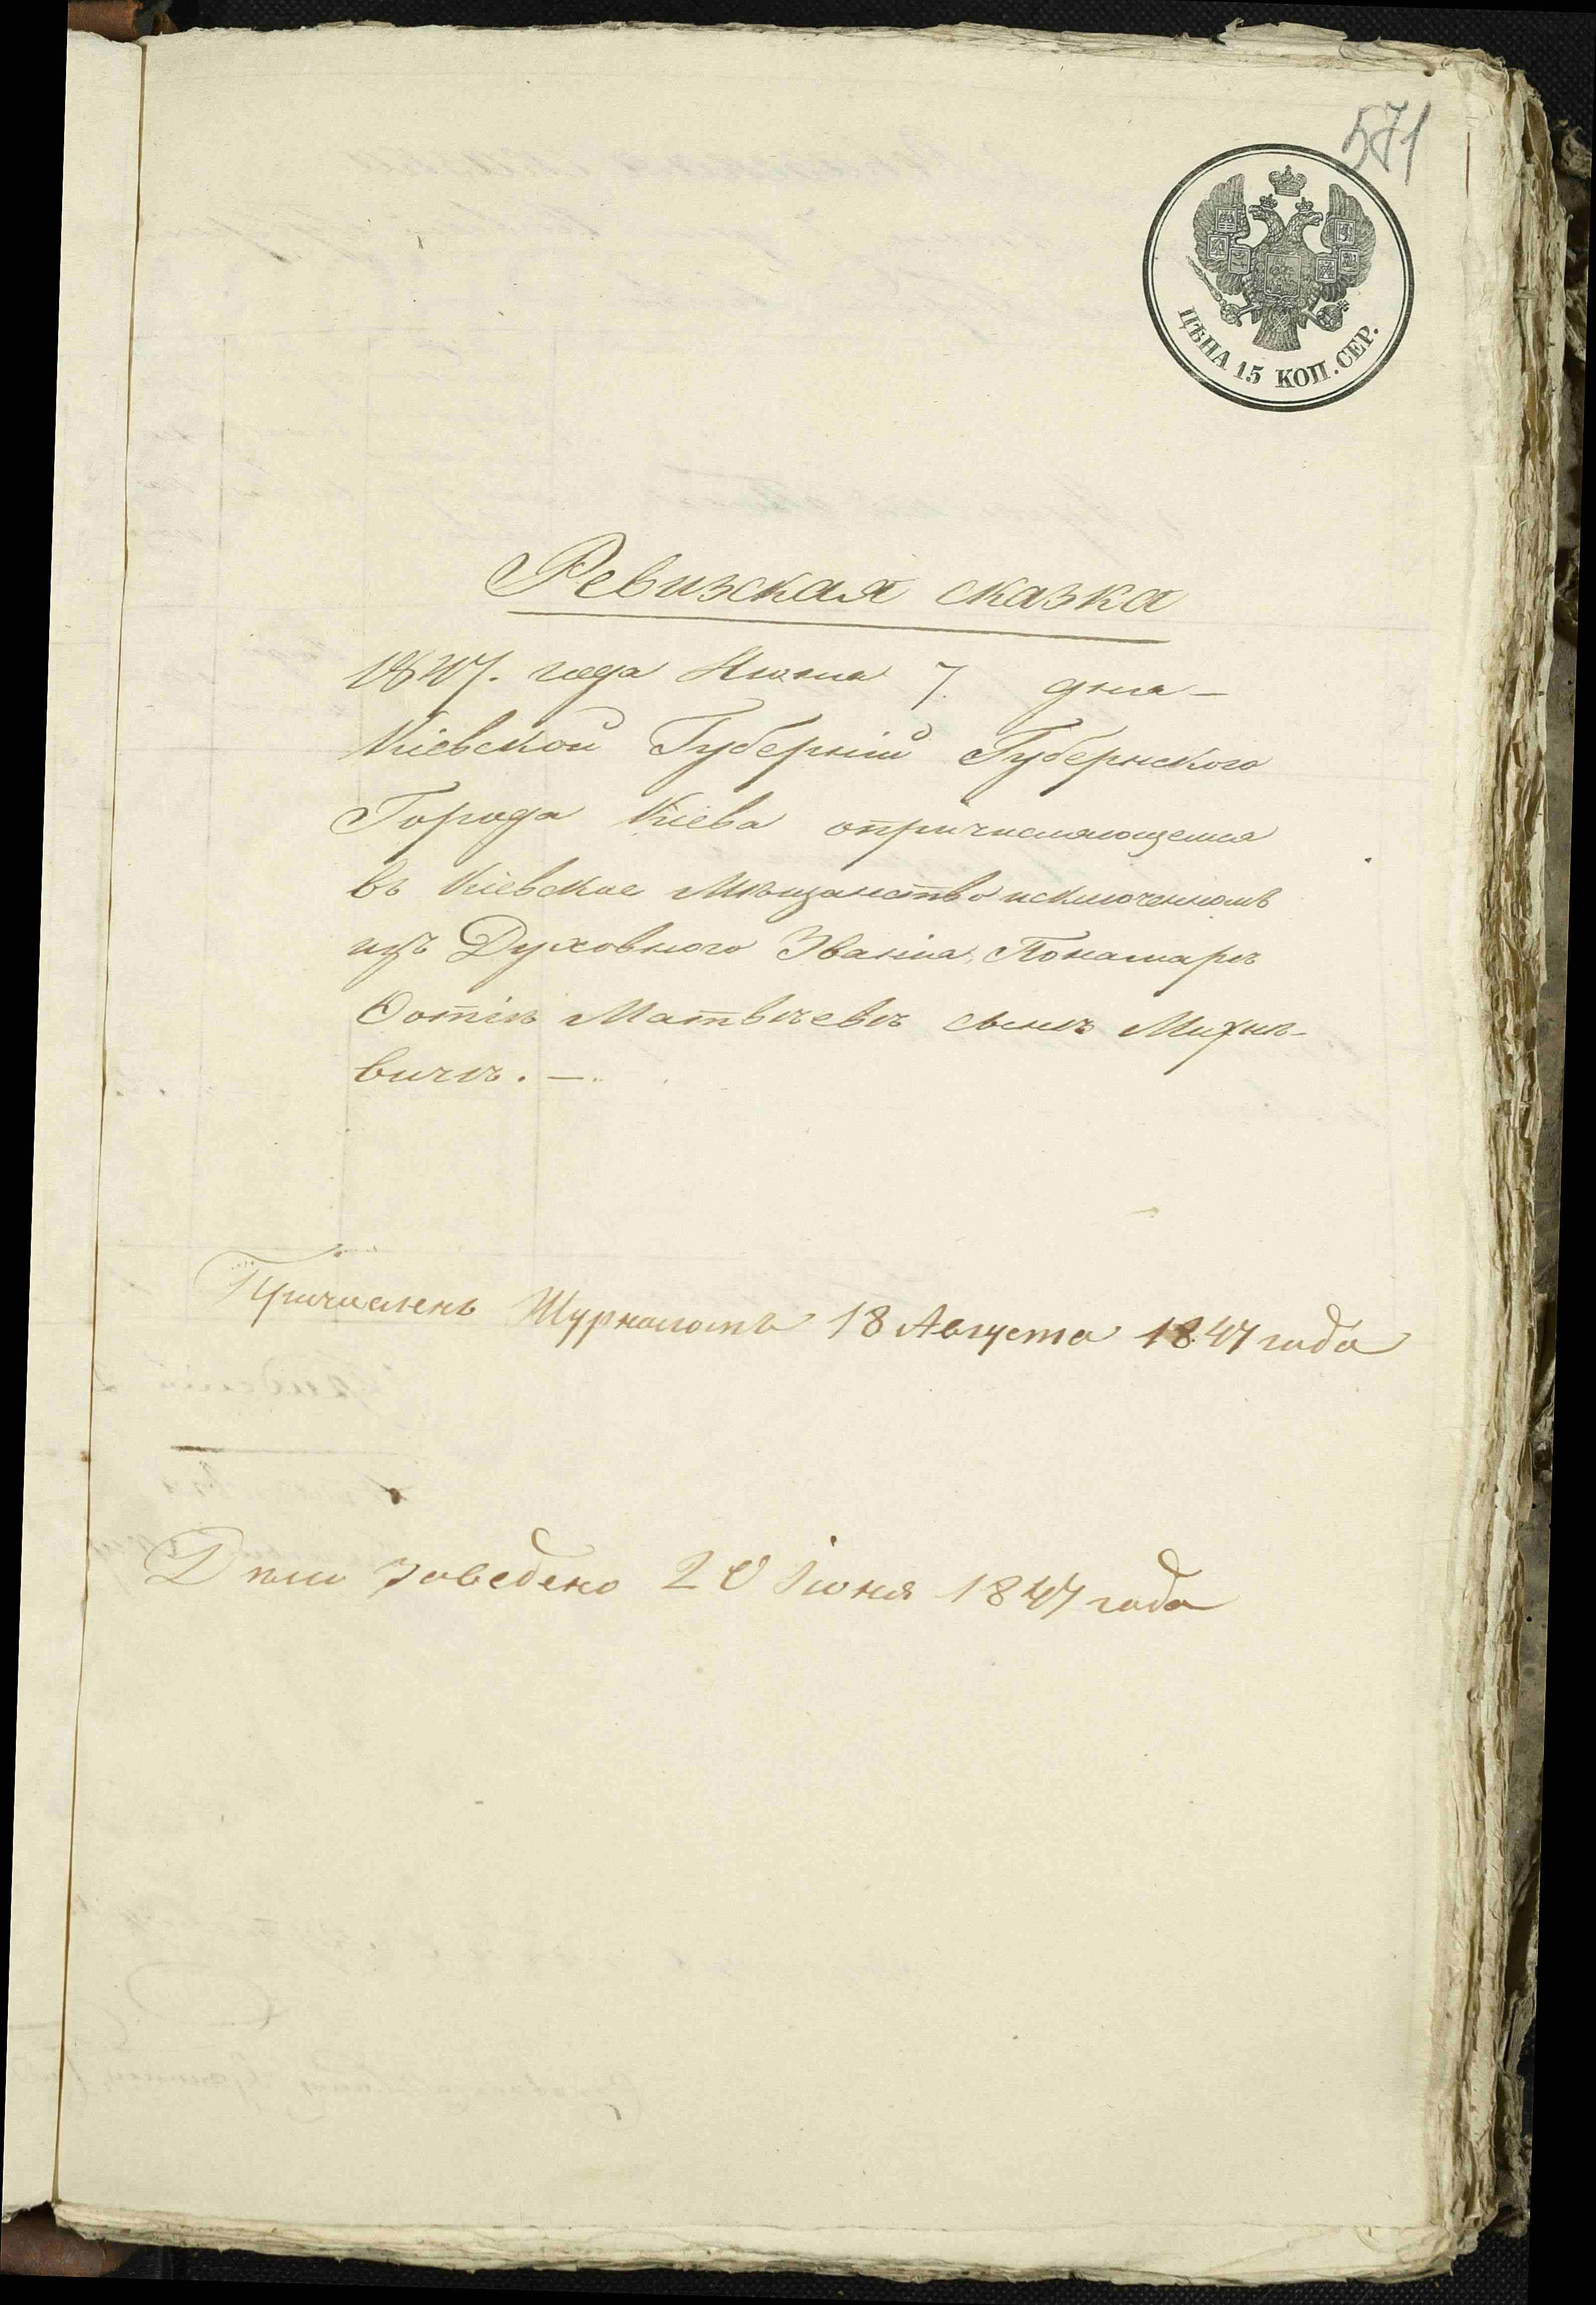 571
ЦѢНА 15 КОП. СЕР.
Ревизская сказка
1847. года Июня 7. дня –
Кіевской Губерніи Губернского
Города Кіева опричисляющемся
въ Кіевское Мѣщанство исключенномъ
изъ Духовного Званія, Понамарѣ
Фотіѣ Матвѣевѣ сынѣ Михнѣ-
вичѣ. –
Причисленъ Журналомъ 18 Августа 1847 года
Дѣло заведено 20 Іюня 1847 года